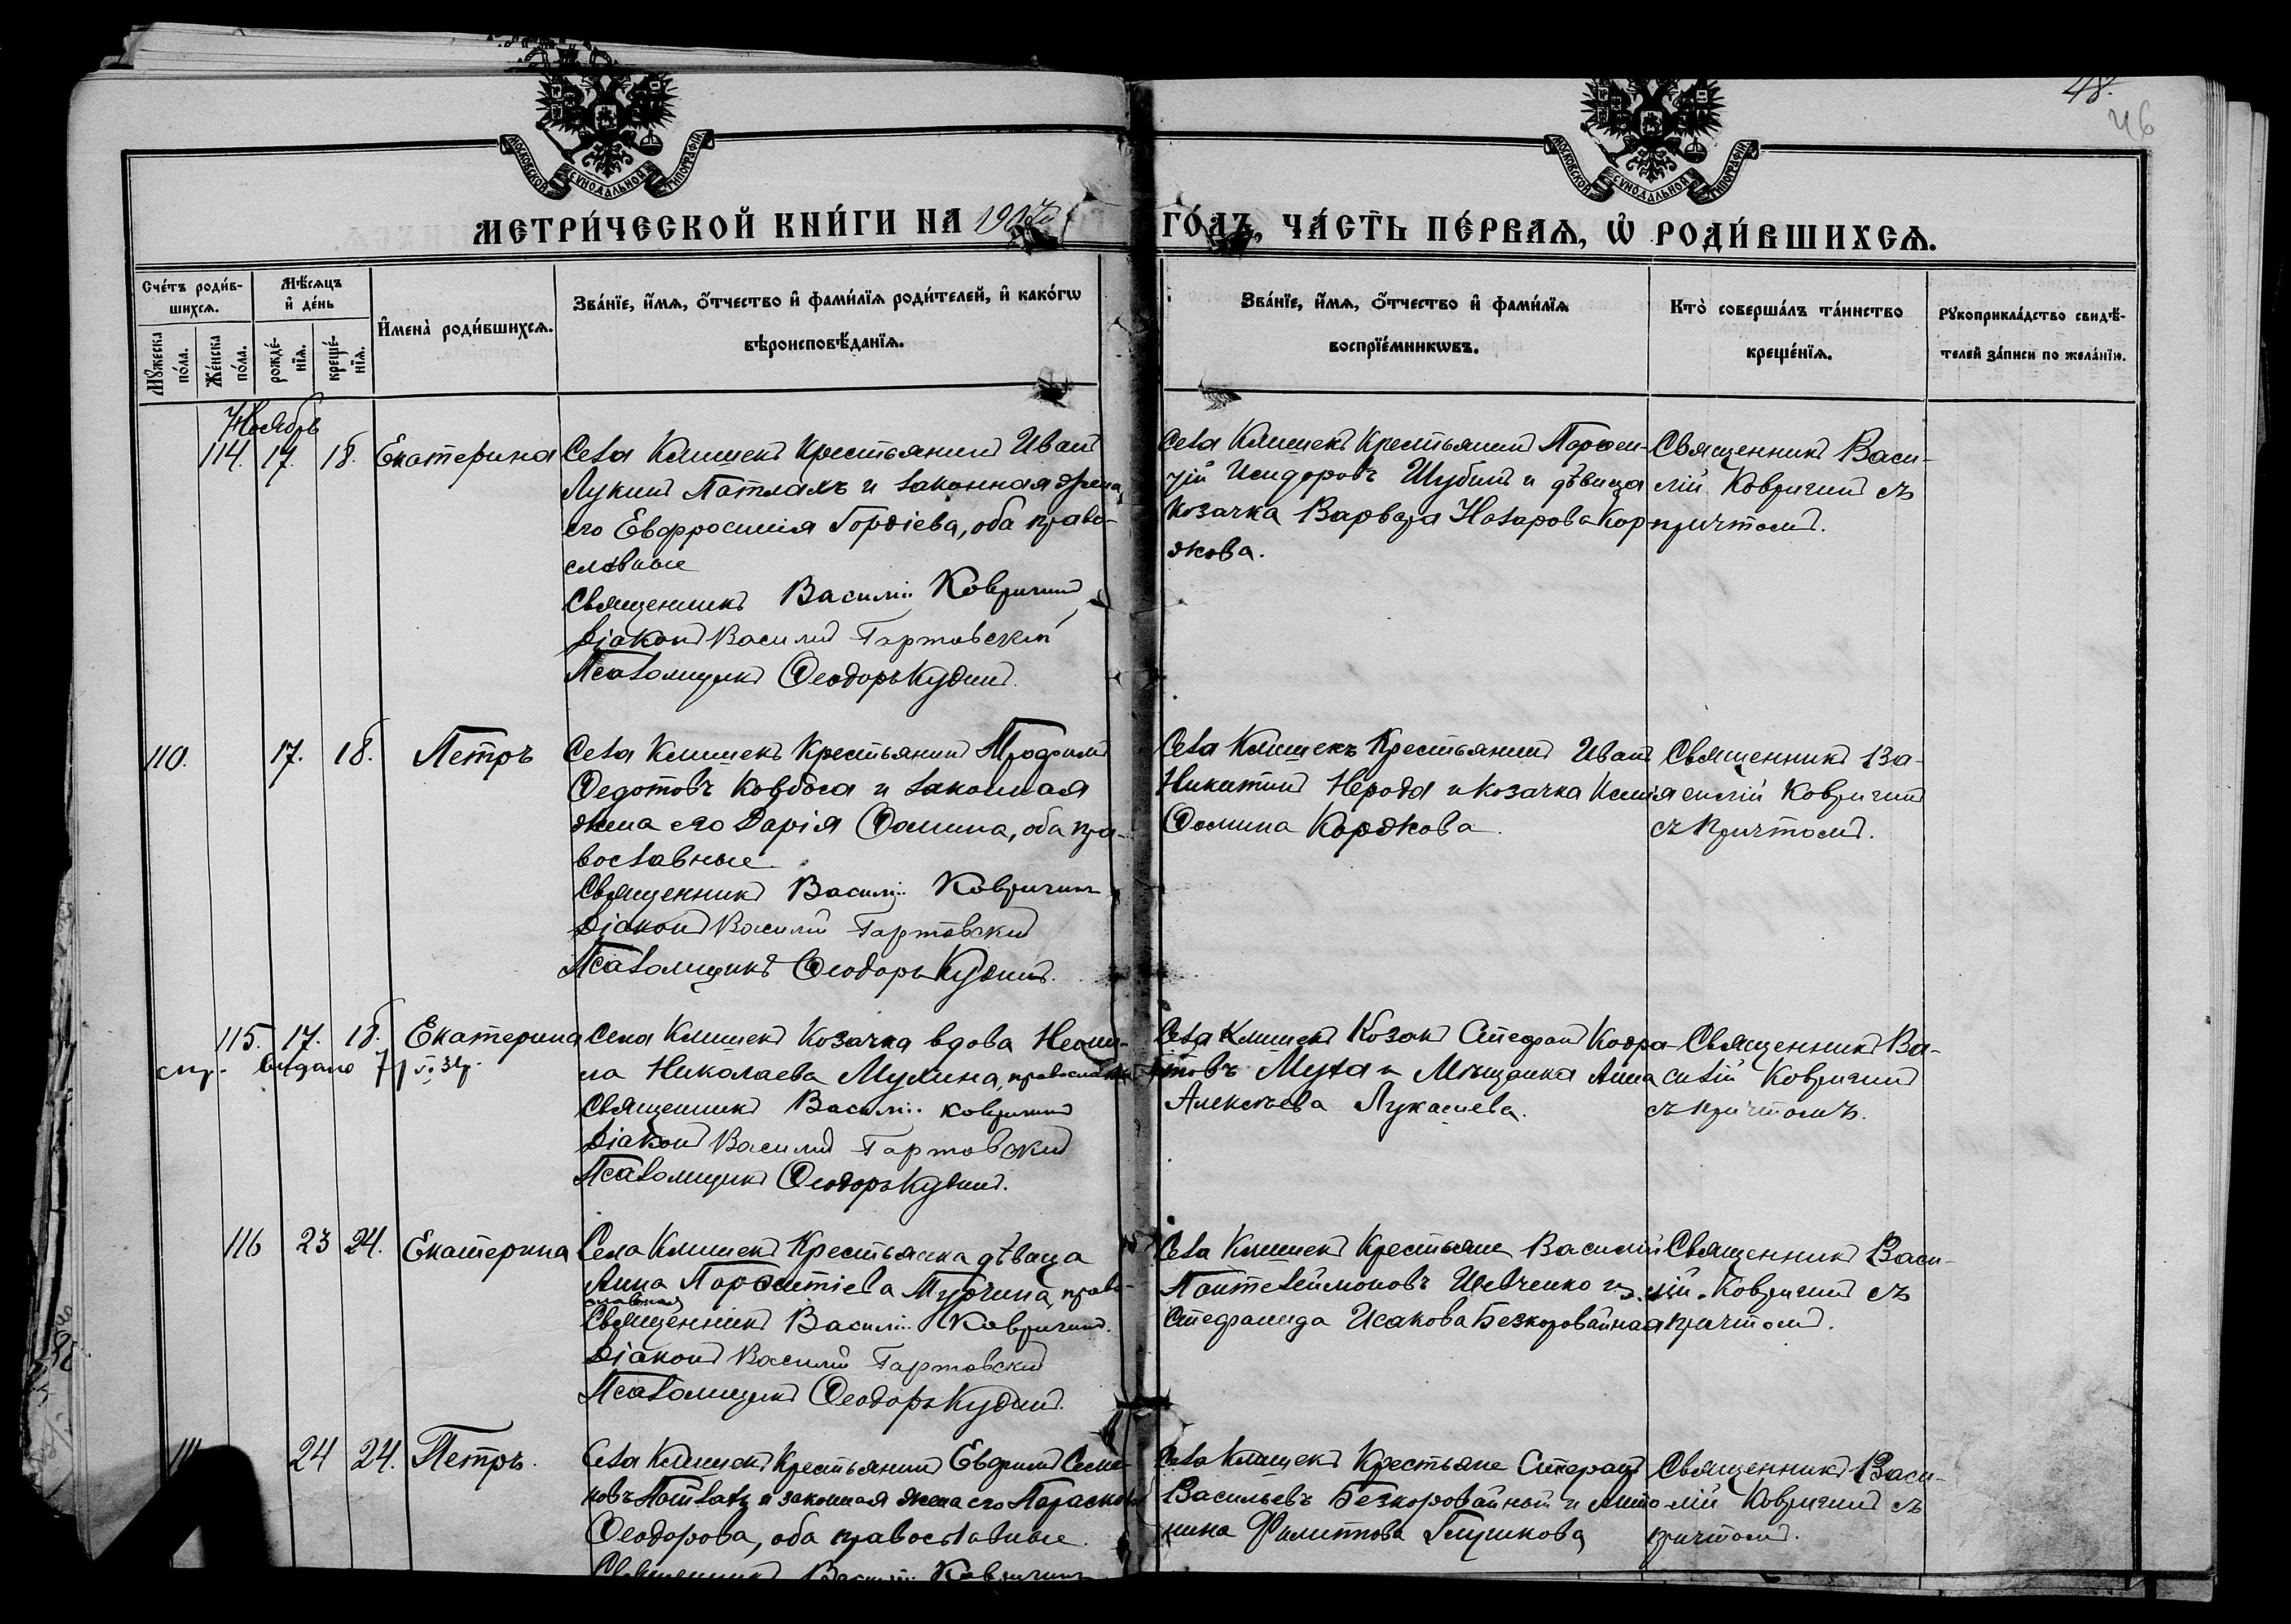 48.
46
МОСКОВСКОЙ СѴНОДАЛЬНОЙ ТИПОГРАФІИ
МОСКОВСКОЙ СѴНОДАЛЬНОЙ ТИПОГРАФІИ
МЕТРИ́ЧЕСКОЙ КНИ́ГИ НА 1907 ГО́ДЪ, ЧА́СТЬ ПЕ́РВАѦ, Ѡ҆ РОДИ́ВШИХСѦ.
Сче́тъ роди́в-
шихсѧ.
Мꙋ́жеска по́ла.
Же́нска по́ла.
Мѣ́сѧцъ
и҆ де́нь
рожде́-
нїѧ.
креще́-
нїѧ.
И҆мена̀ роди́вшихсѧ.
Зва́нїе, и҆́мѧ, ѻ҆́тчество и҆ фами́лїѧ роди́телей, и҆ како́гѡ
вѣроисповѣ́данїѧ.
Зва́нїе, и҆́мѧ, ѻ҆́тчество и҆ фами́лїѧ
воспрїе́мникѡвъ.
Кто̀ соверша́лъ та́инство
креще́нїѧ.
Рꙋкоприкла́дство свидѣ́-
телей за́писи по жела́нїю.
Ноябрь
114. 17. 18. Екатерина
Села Клишекъ Крестьянинъ Иванъ
Лукинъ Патлахъ и законная жена
его Евфросинія Гордіева, оба право-
славные
Священникъ Василій Ковригинъ
Діаконъ Василій Гартовскій
Псаломщикъ Ѳеодоръ Кудинъ.
Села Клишекъ Крестьянинъ Парѳен-
тій Исидоровъ Шубинъ и дѣвица
Козачка Варвара Назарова Кор
жова.
Священникъ Васи-
лій Ковригинъ съ
причтомъ.
110. 17. 18. Петръ
Села Клишекъ Крестьянинъ Трофимъ
Ѳедотовъ Ковбаса и законная
жена его Дарія Ѳомина, оба пра-
вославные.
Священникъ Василій Ковригинъ
Діаконъ Василій Гартовскій
Псаломщикъ Ѳеодоръ Кудинъ.
Села Клишекъ Крестьянинъ Иванъ
Никитинъ Нерода и козачка Ксенія
Ѳомина Коржова.
Священникъ Ва-
силій Ковригинъ
съ причтомъ.
115. 17. 18. Екатерина
спр. выдано
Села Клишекъ Козачка вдова Неони-
ла Николаева Мухина, православная
Священникъ Василій Ковригинъ
Діаконъ Василій Гартовскій
Псаломщикъ Ѳеодоръ Кудинъ.
Села Клишекъ Козакъ Стефанъ Кодра-
товъ Муха и Мѣщанка Анна
Алексѣева Лукашева.
Священникъ Ва-
силій Ковригинъ
съ причтомъ.
116 23 24. Екатерина
Села Клишекъ Крестьянка дѣвица
Анна Пароентіева Турчина, право-
славная
Священникъ Василій Ковригинъ.
Діаконъ Василій Гартовскій
Псаломщикъ Ѳеодоръ Кудинъ.
Села Клишекъ Крестьяне Василій
Пантелеймоновъ Шевченко и
Стефанида Исакова Безкоровайная
Священникъ Васи-
лій Ковригинъ съ
причтомъ.
24 24. Петръ.
Села Клишекъ Крестьянинъ Евфимъ Семе-
новъ Патлахъ и законная жена его Параскева
Ѳеодорова, оба православные.
Священникъ Василій Ковригинъ
Села Клишекъ Крестьяне
Васильевъ Безкоровайный и Анто
нина Филиппова Глушкова
Священникъ Васи-
лій Ковригинъ съ
причтомъ.